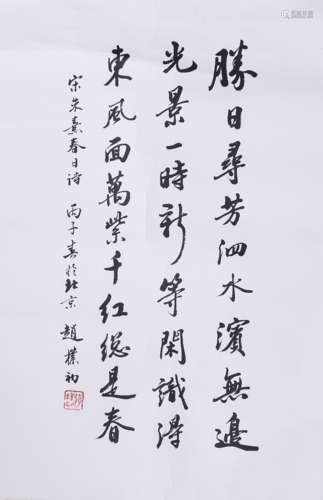 勝日尋芳泗水濱無邊
光景一時新等閑識得
東風面萬紫千红總是春
宋朱熹春日诗 丙子春於北京 趙樸初